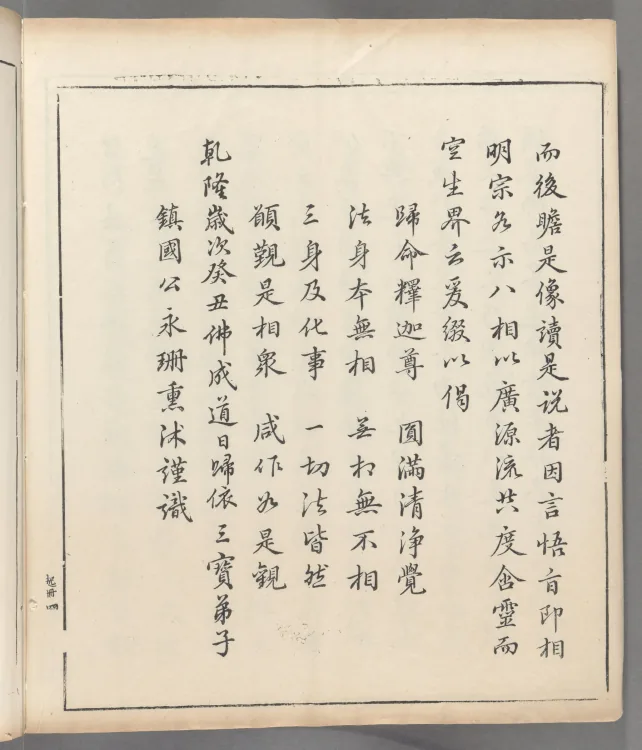 而後瞻是像讀是説者因言悟旨即相
明宗各示八相以廣源流共度含靈而
空生界云爰綴以偈
歸命釋迦尊　圓滿清淨覺
法身本無相　無相無不相
三身及化事　一切法皆然
願覲是相衆　咸作如是觀
乾隆歲次癸丑佛成道日歸依三寶弟子
鎮國公永珊熏沐謹識